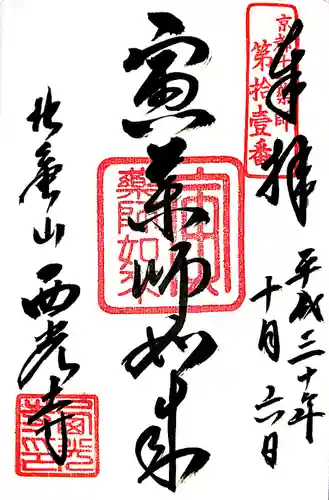 奉拝
京都十二薬師
第拾壹番
平成三十年
十月六日
寅薬師如来
寅
薬師如来
北亀山
西光寺